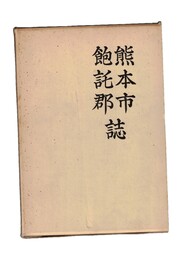 熊本市
飽託郡
誌